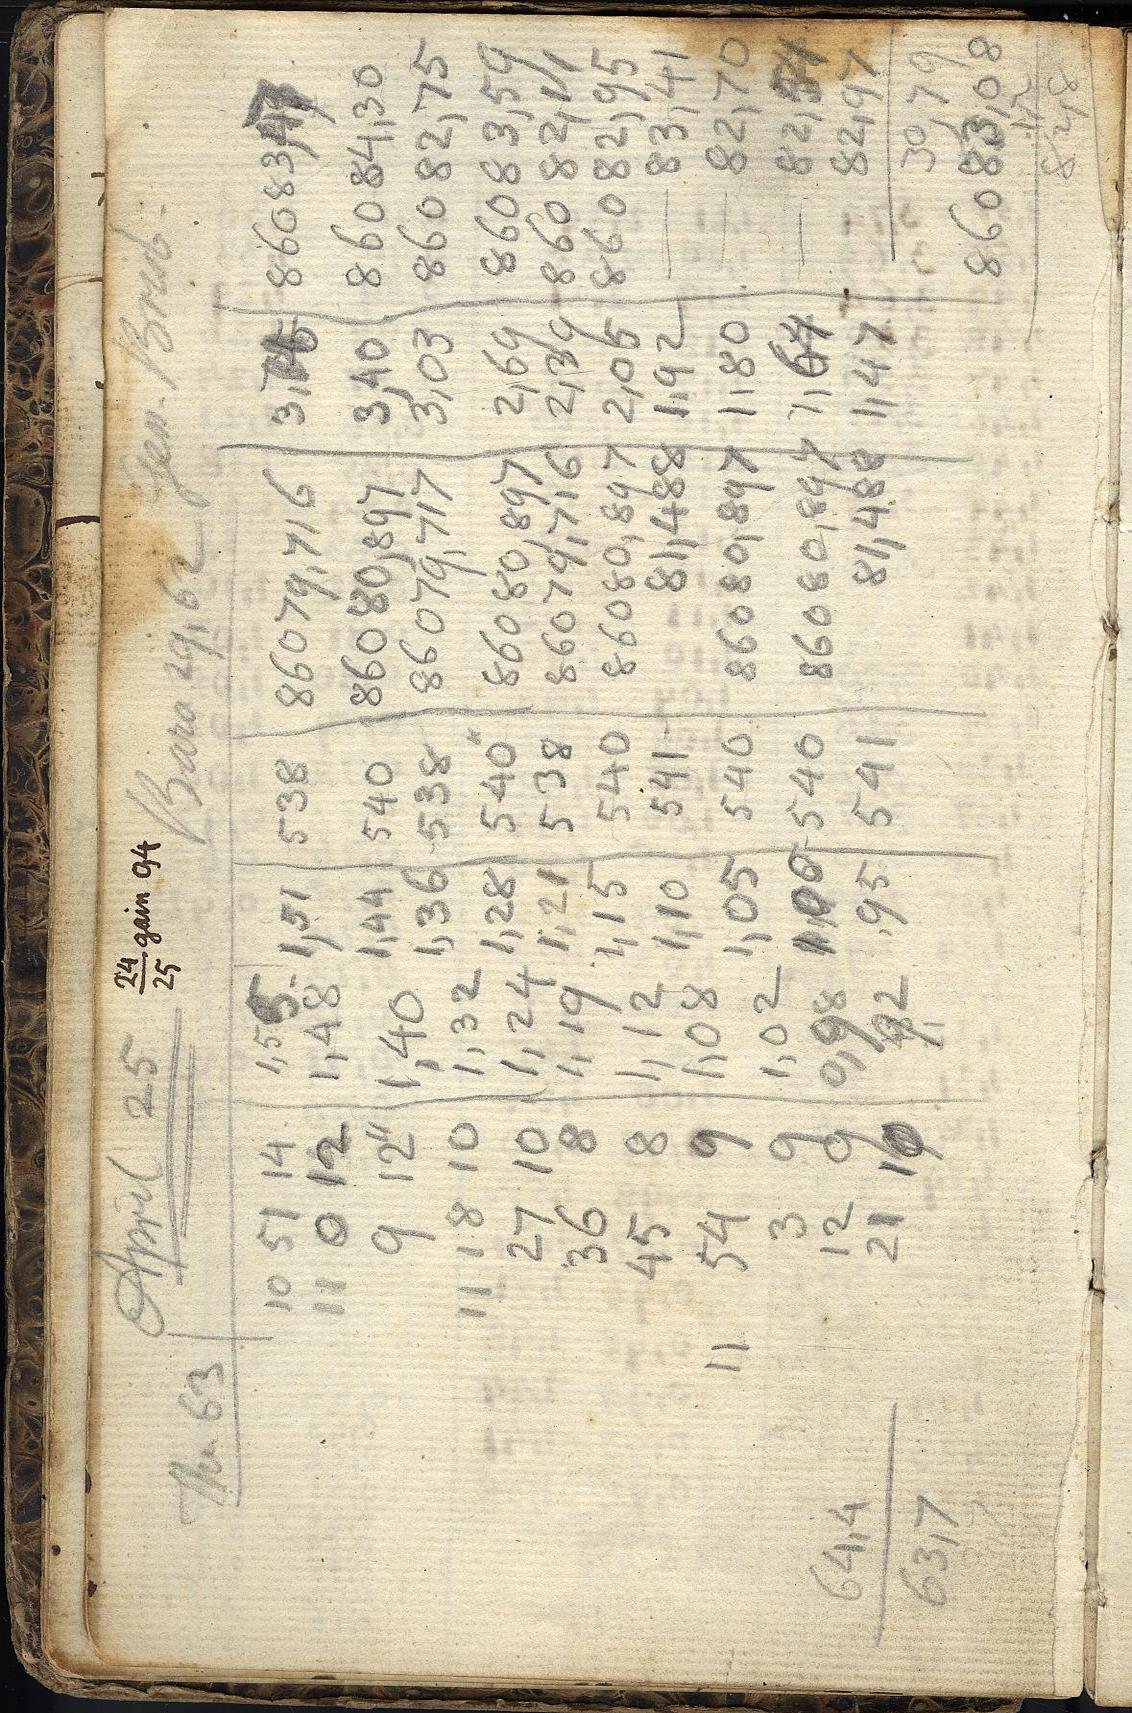 April 25 24/25 gain 94
The 63 Baro 29,6
10 51 14 1,55
1,51 538 86079,716 3,76 86083,47
11 0 12 1,48
1,44 540 86080,897 3,40 86084,30
9 12" 1,40
1,36 538 86079,717 3,03 86082,75
11 18 10 1,32
1,28 540 86080,897 2,69 86083,59
27 10 1,24
1,21 538 86079,716 2,39 86082,11
36 8 1,19
1,15 540 86080,897 2,05 86082,95
45 8 1,12
1,10 541 81,488 1,92 83,41
11 54 9 1,08
1,05 540 86080,897 1,80 82,70
3 9 1,02
540 86080,897 1,64 82,54
12 9 0,98
,95 541 81,488 1,47 82,97
21 10 ,92
64,4
63,7
30,79
86083,08